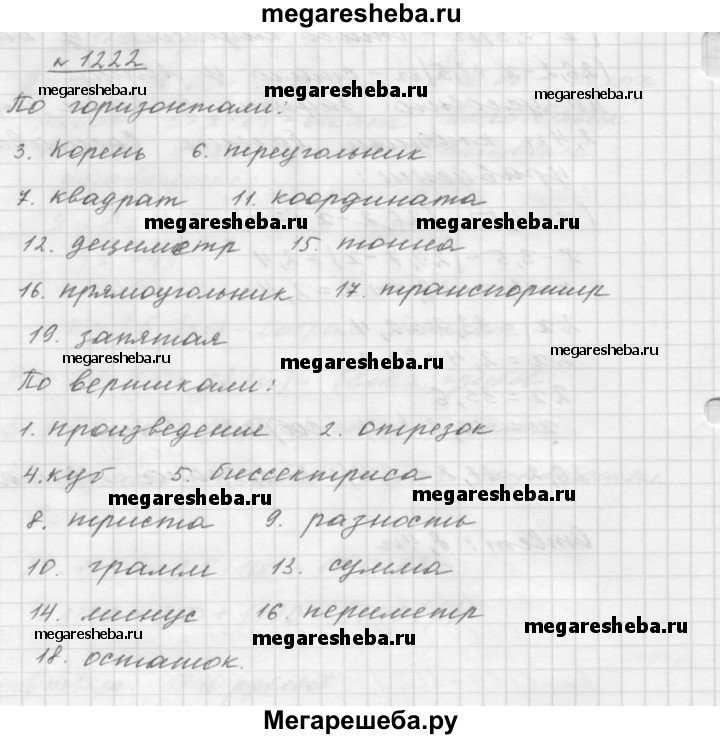 megaresheba.ru
№ 1222
megaresheba.ru megaresheba.ru megaresheba.ru
По горизонтали:
3. Корень 6. треугольник
7. квадрат 11. координата
megaresheba.ru megaresheba.ru
12. дециметр 15. тонна
16. прямоугольник 17. транспортир
19. запятая
megaresheba.ru megaresheba.ru megaresheba.ru
По вертикали:
1. произведение 2. отрезок
4. куб 5. биссектриса
megaresheba.ru megaresheba.ru
8. триста 9. разность
10. грамм 13. сумма
14. минус 16. периметр
megaresheba.ru megaresheba.ru megaresheba.ru
18. остаток.
Мегарешеба.ру